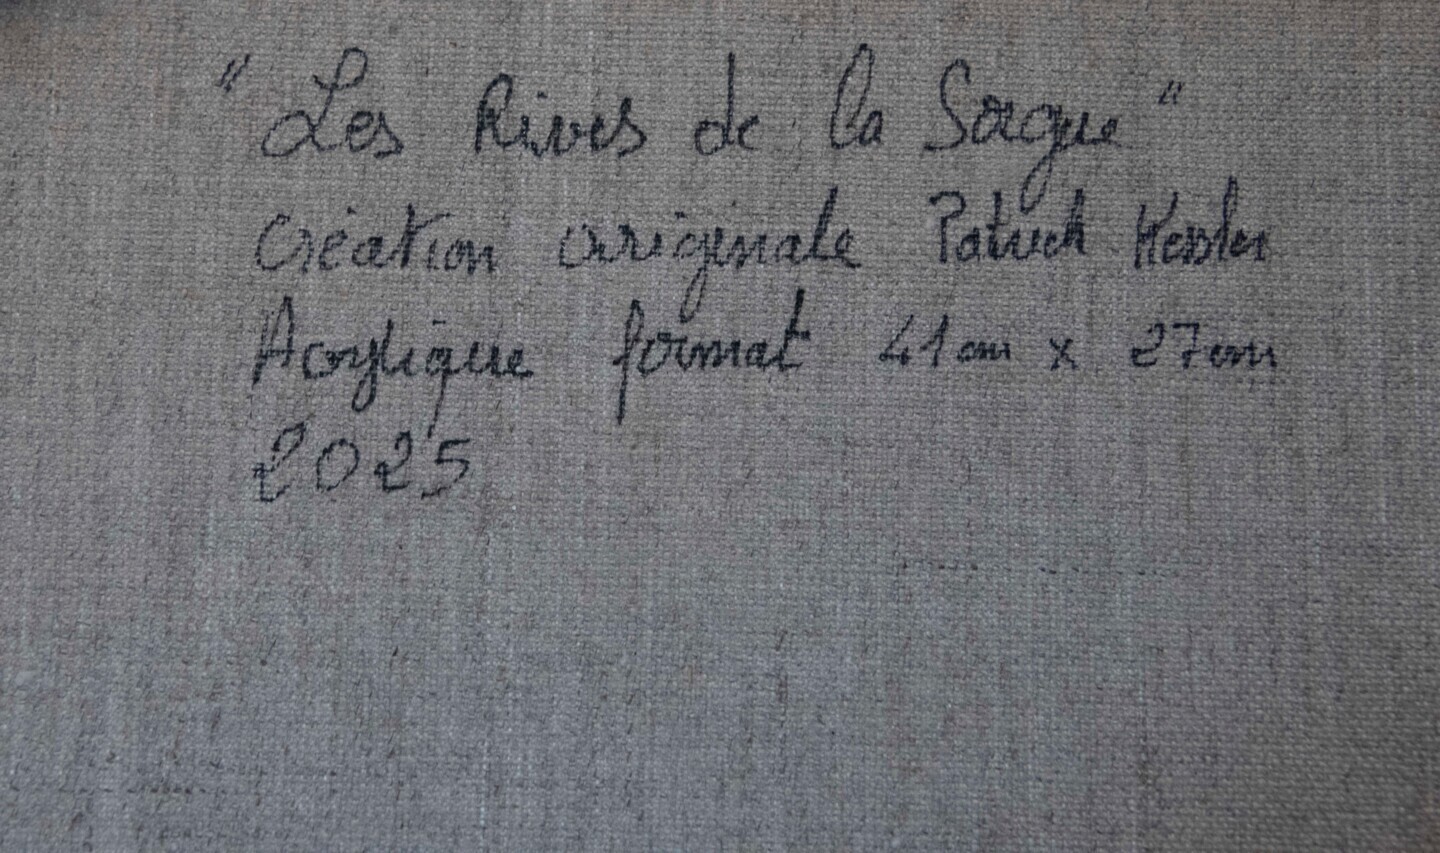 "Les Rives de la Sorgue"
Création originale Patrick Kessler
Acrylique format 41cm x 27cm
2025